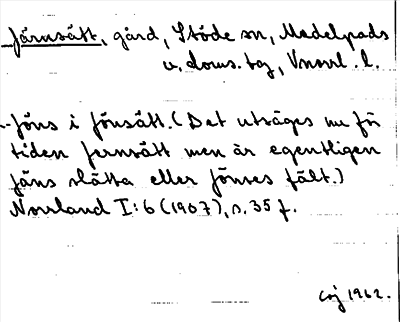 Järnsätt, gård, Stöde sn, Medelpads
v. doms. tg, Vnorrl. l.
Jöns i Jönsätt. (Det utsäges nu för
tiden fernsätt men är egentligen
Jäns slätta eller Jönses fält.)
Norrland I:6 (1907), s. 35 f.
1962.